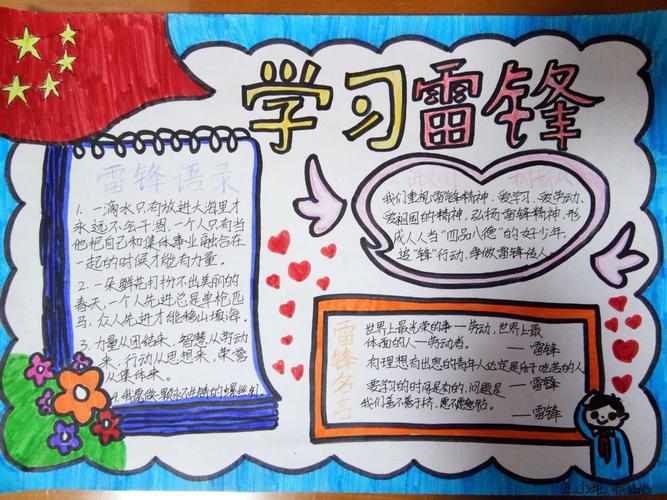 学习雷锋
雷锋语录
1. 一滴水只有放进大海里才
永远不会干涸，一个人只有当
他把自己和集体事业融合在
一起的时候才能有力量。
2. 一朵鲜花打扮不出美丽的
春天，一个人先进总是单枪匹
马，众人先进才能移山填海。
3. 力量从团结来，智慧从劳动
来，行动从思想来，荣誉
从集体来。
4. 我愿做一颗永不生锈的螺丝钉
我们重视雷锋精神、爱学习、爱劳动、
爱祖国的精神，弘扬雷锋精神，形
成人人当“四品八德”的好少年，
追“锋”行动，争做雷锋传人。
雷锋名言
世界上最光荣的事—劳动，世界上最
体面的人—劳动者。
——雷锋
有理想有出息的青年人必定是乐于吃苦的人
——雷锋
学习的时间是有的，问题是
我们善不善于挤，愿不愿意钻。
——雷锋